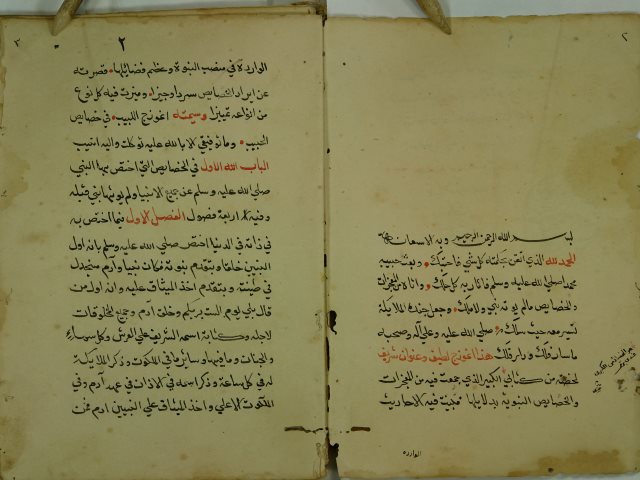 بسم الله الرحمن الرحيم وبه الاستعانة
الحمد لله الذي اتقن بحكمته كل شي فاحتبك وبعث حبيبه
محمدا صلي الله عليه وسلم فانار به كل حلك واتاه من المعجزات
والخصايص مالم يوته نبي ولا ملك وجعل جنده الملايكة
تسير معه حيث سلك صلي الله عليه وعلي آله وصحبه
ما سار فلك ودار فلك هذا انموذج لطيف وعنوان شريف
لخصته من كتابي الكبير الذي جمعت فيه من المعجزات
والخصايص النبوية بدلايلها فتتبعت فيه الاحاديث
الوارده
٢
الواردة في منصب النبوة وعظم فضائلها قصرته
عن ايراد الخصايص سردا وجيزا وميزت فيه كل نوع
من انواعه تمييزا وسميته انموذج اللبيب في خصايص
الحبيب وما توفيقي الا بالله عليه توكلت واليه انيب
الباب الاول في الخصايص التي اختص بها النبي
صلي الله عليه وسلم عن جميع الانبيا ولم يوتها نبي قبله
وفيه اربعة فصول الفصل الاول فيما اختص به
في ذاته في الدنيا اختص صلي الله عليه وسلم بانه اول
النبيين خلقا وبتقدم نبوته فكان نبيا وآدم منجدل
في طينته وبتقدم اخذ الميثاق عليه وانه اول من
قال بلي يوم الست بربكم وخلق آدم وجميع المخلوقات
لاجله وكتابة اسمه الشريف علي العرش وكل سماء
والجنات وما فيها وسائر ما في الملكوت وذكر الملايكة
له في كل ساعة وذكر اسمه في الاذان في عهد آدم وفي
الملكوت الاعلي واخذ الميثاق علي النبيين ادم فمن